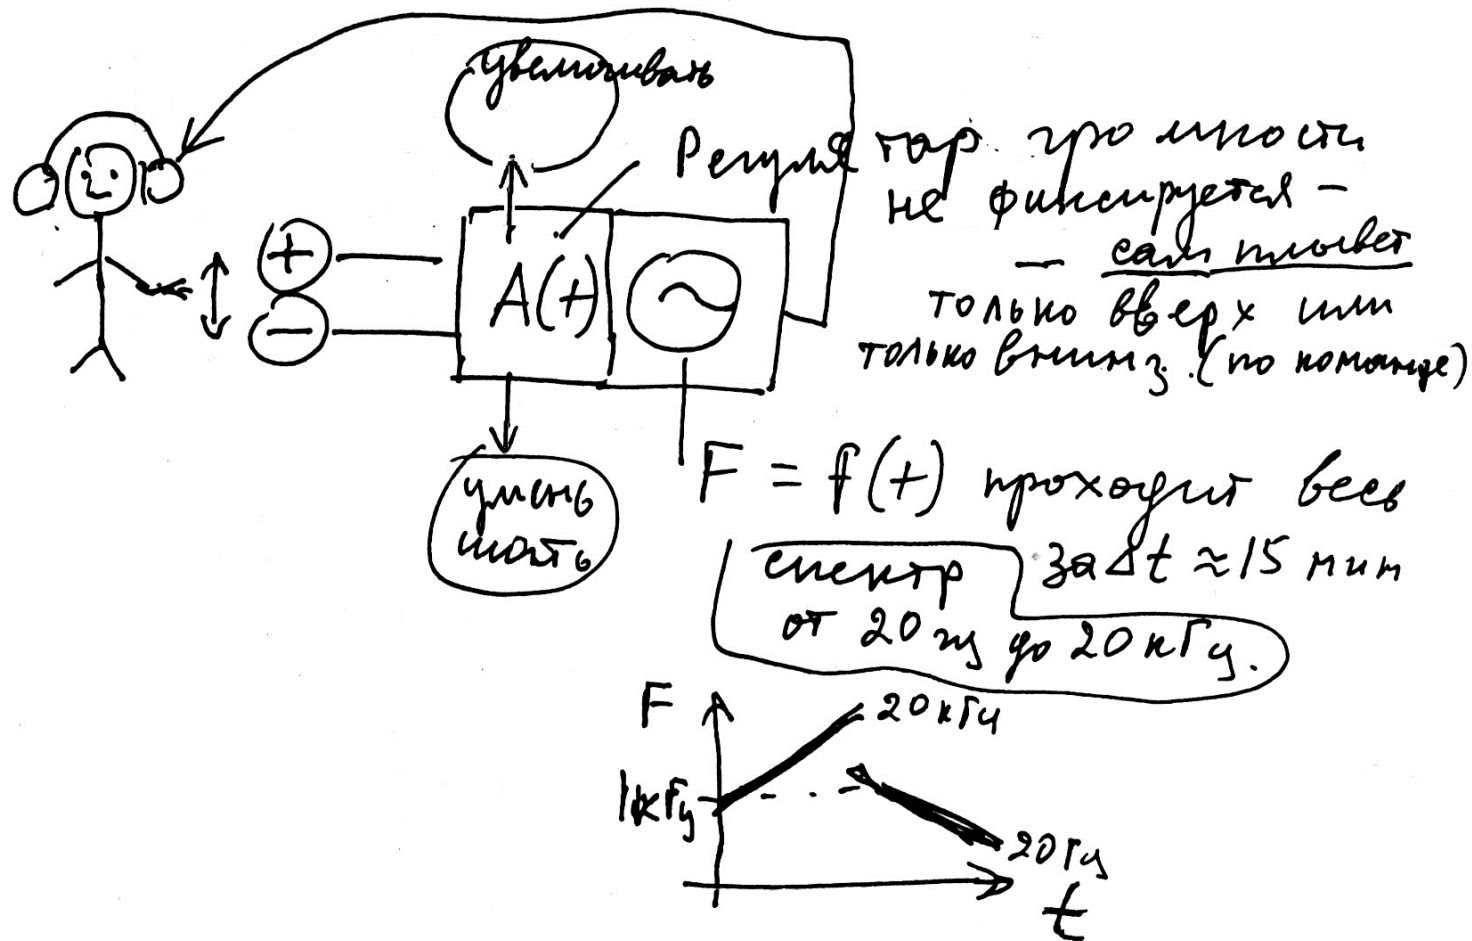 увеличивать
Регулятор громкости
не фиксируется –
– сам плывет
только вверх или
только вниз. (по команде)
+
–
A(t)
умень
шать
F = f(t) проходит весь
спектр за Δt ≈ 15 мин
от 20 гц до 20 кГц.
F
20 кГц
1 кГц
20 Гц
t